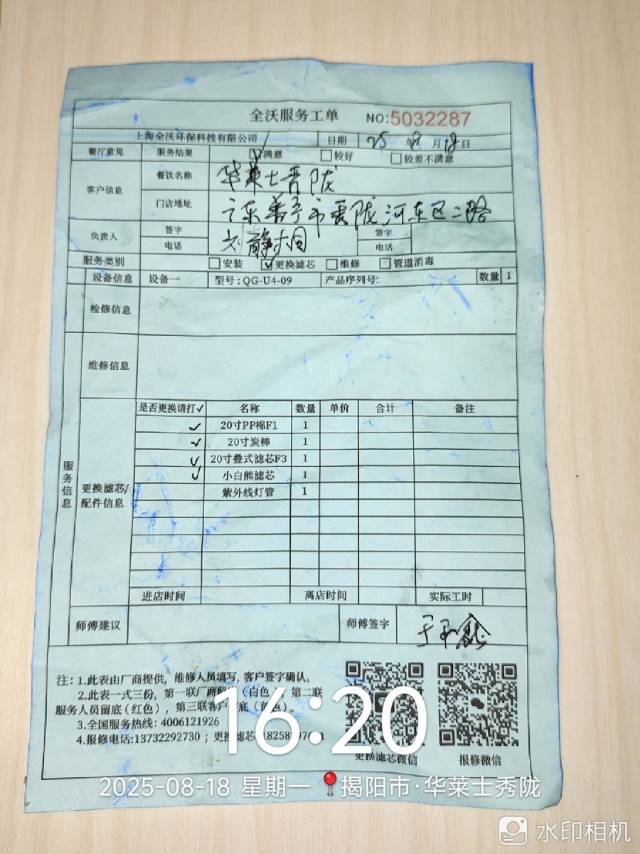 全沃服务工单 NO:5032287
上海全沃环保科技有限公司 日期 25年8月18日
餐厅意见 服务结果 ☑满意 □较好 □较差不满意
客户信息 餐饮名称 华莱士晋陇
门店地址 广东普宁市 陇河东区二路
负责人 签字 刘静 签字
电话 电话
服务类别 □安装 ☑更换滤芯 □维修 □管道消毒
设备信息 设备一 型号:QG-U4-09 产品序列号: 数量 1
检修信息
维修信息
服务信息
更换滤芯/配件信息
是否更换请打✓ 名称 数量 单价 合计 备注
✓ 20寸PP棉F1 1
✓ 20寸炭棒 1
✓ 20寸叠式滤芯F3 1
✓ 小白熊滤芯 1
紫外线灯管 1
进店时间 离店时间 实际工时
师傅建议 师傅签字
注:1.此表由厂商提供,维修人员填写,客户签字确认。
2.此表一式三份,第一联厂商 (白色),第二联
服务人员留底(红色),第三联客户 底
3.全国服务热线:4006121926
4.报修电话:13732292730;更换滤芯
更换滤芯微信 报修微信
16:20
2025-08-18 星期一 揭阳市·华莱士秀陇
水印相机